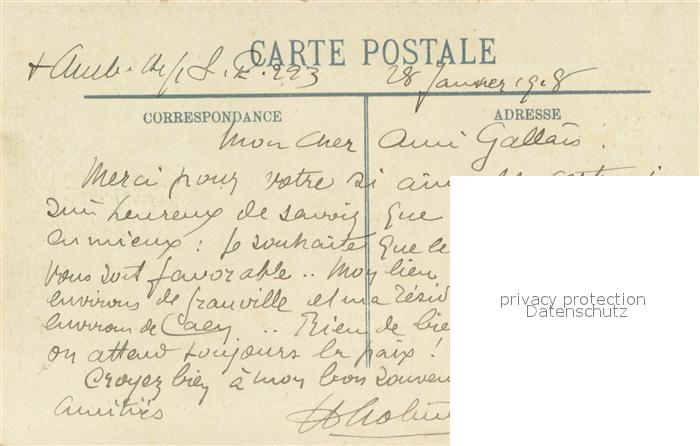 CARTE POSTALE
S. P. 223 28 Janvier 1918
CORRESPONDANCE ADRESSE
Mon cher Ami Gallais.
Merci pour votre si
suis heureux de savoir que
en mieux : je souhaite que le
vous soit favorable .. Mon lieu
environs de Granville et ma résid
environ de Caen .. Rien de bie
on attend toujours la paix !
Croyez bien à mon bon souven
Amitiés
privacy protection
Datenschutz